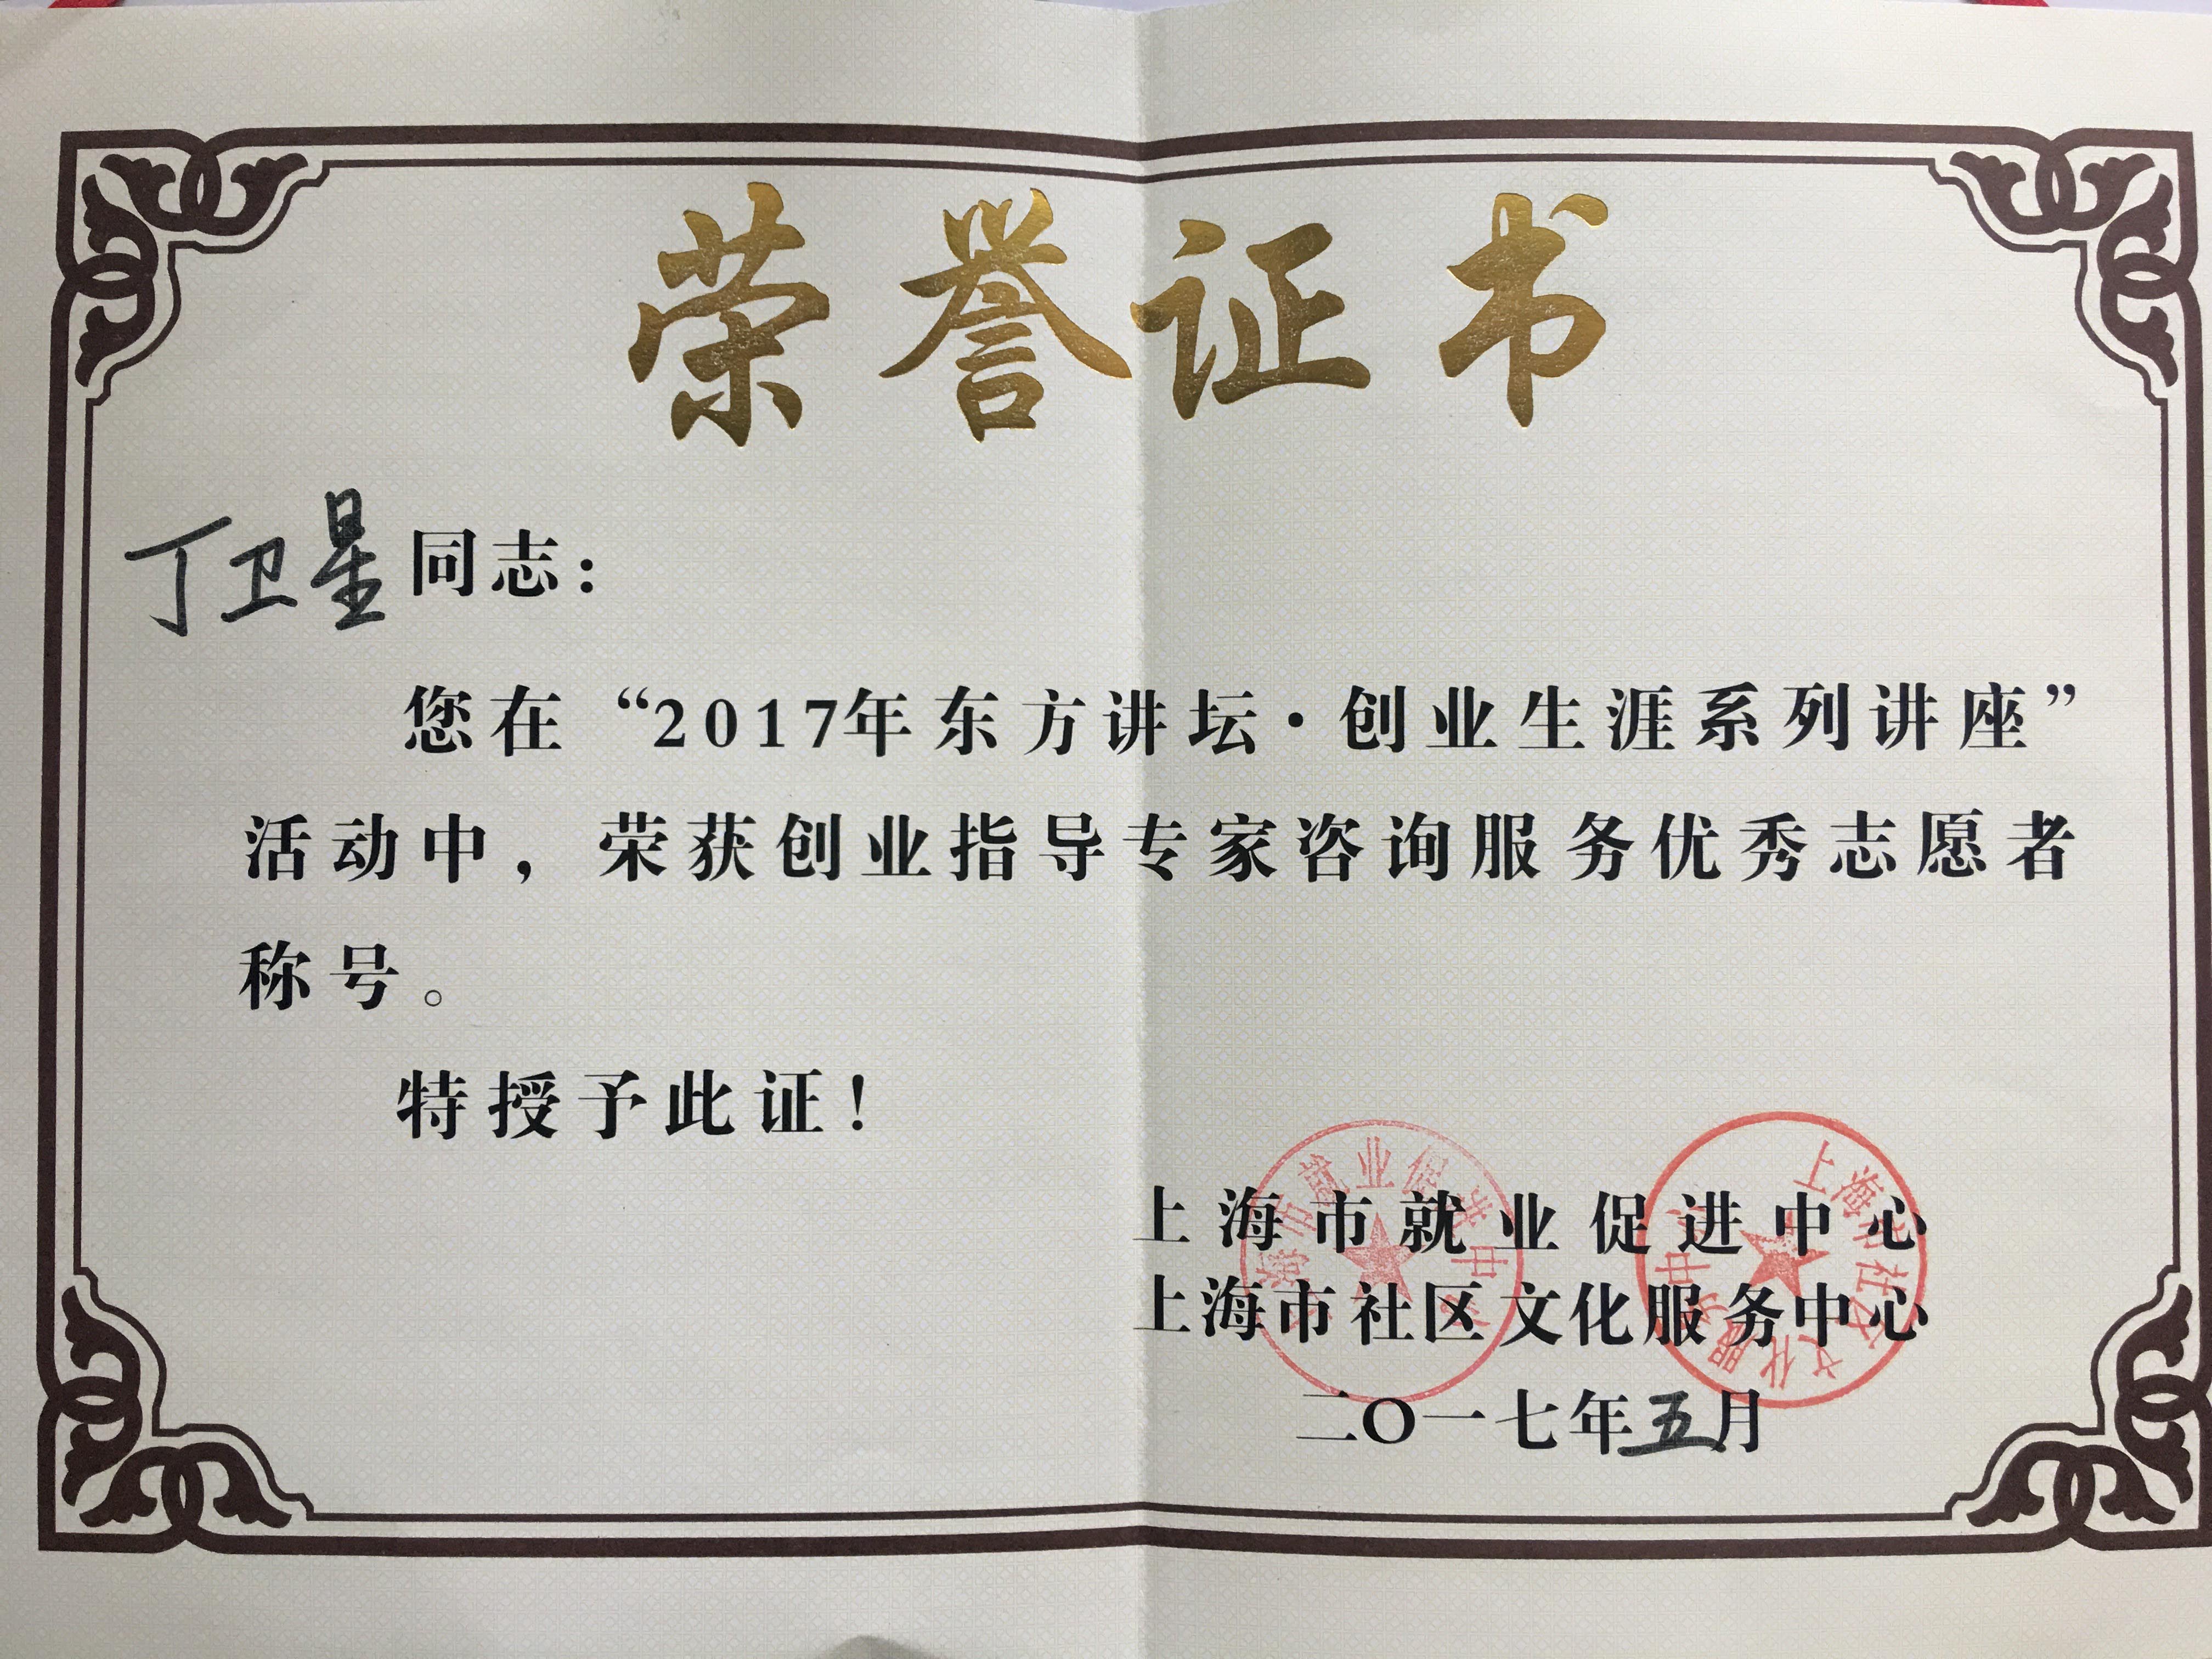 荣誉证书
丁卫星同志：
您在“2017年东方讲坛·创业生涯系列讲座”
活动中，荣获创业指导专家咨询服务优秀志愿者
称号。
特授予此证！
上海市就业促进中心
上海市社区文化服务中心
二〇一七年五月
上海市就业促进中心
上海市社区文化服务中心